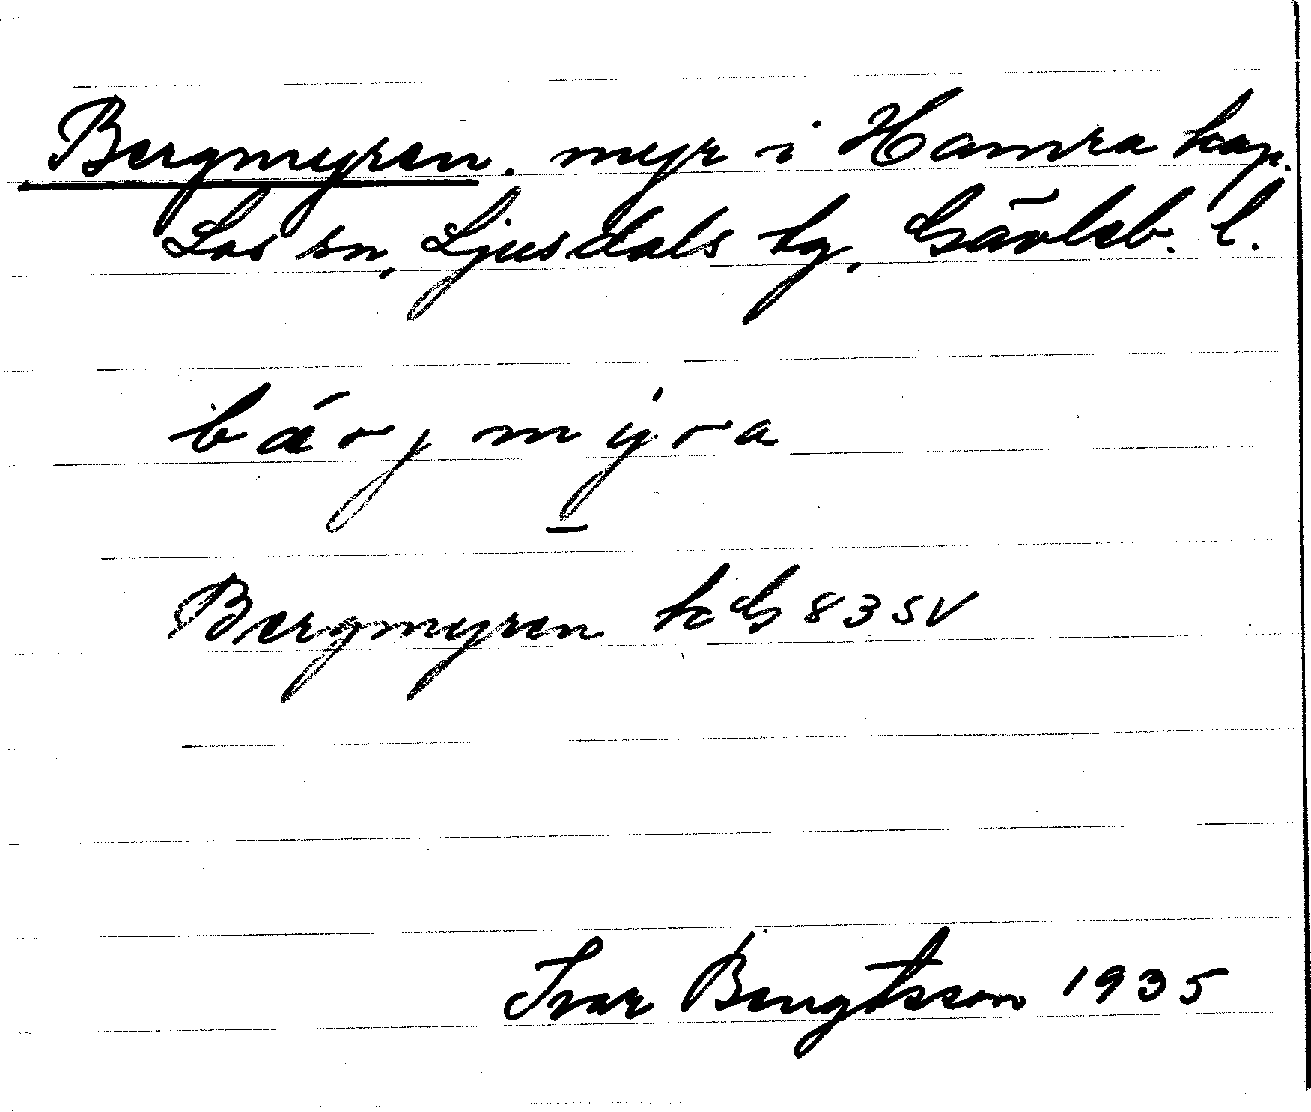 Bergmyren. myr i Hamra kap.
Los sn, Ljusdals tg, Gävleb. l.
bærjmyra
Bergmyren kG 83 SV
Ivar Bengtsson 1935